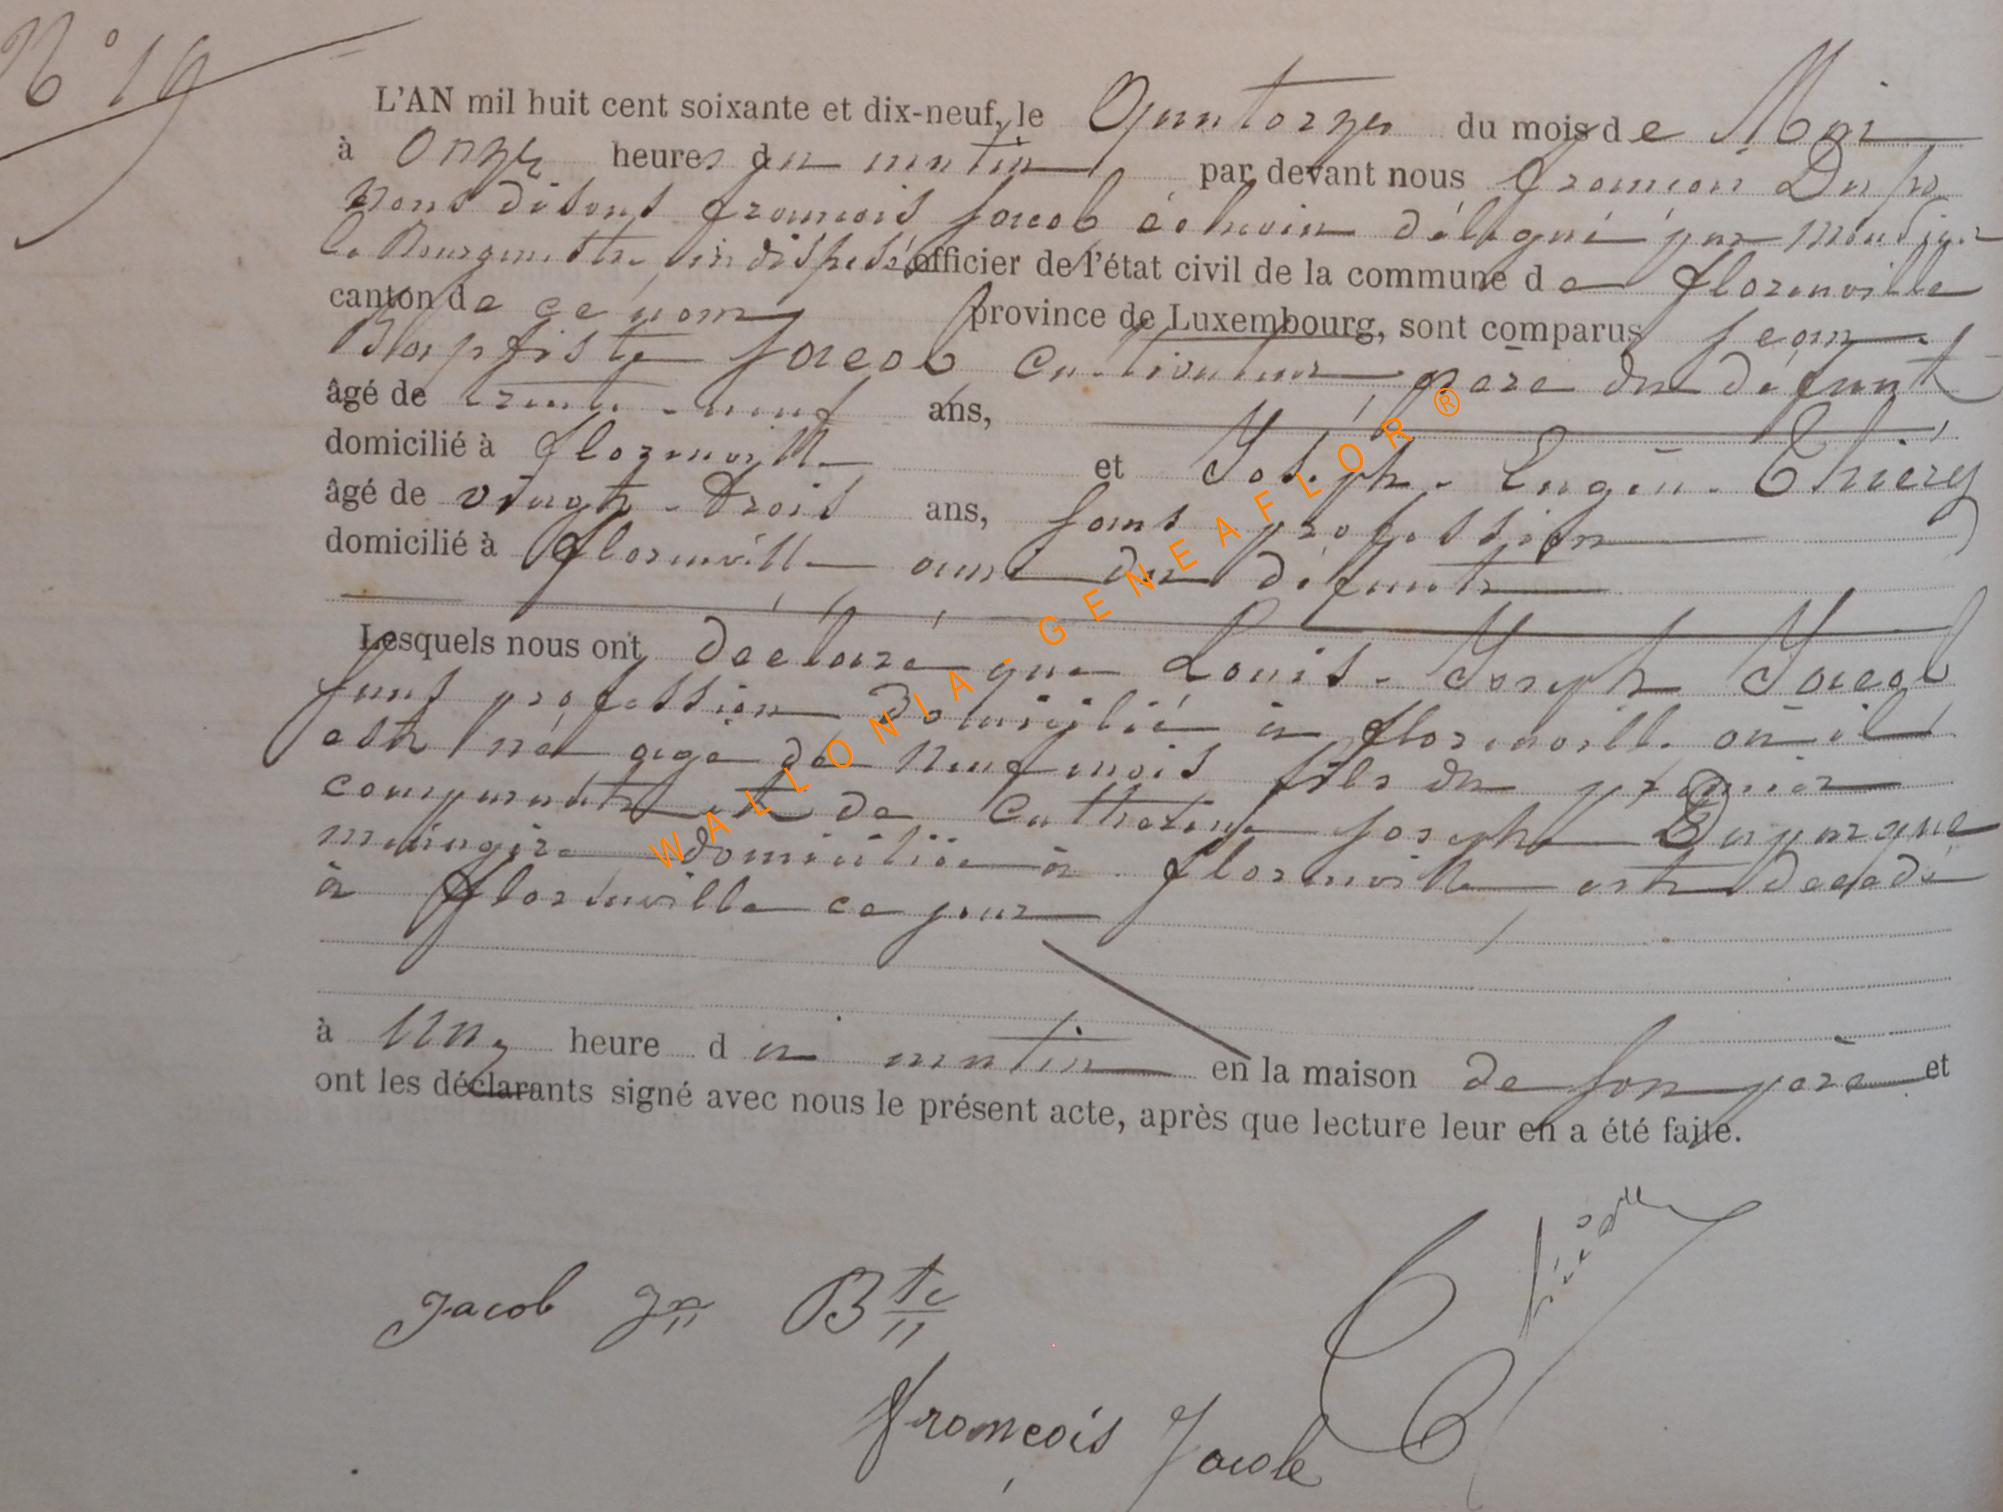 N° 19
L'AN mil huit cent soixante et dix-neuf, le Quatorze du mois de Mai
à Onze heures du matin par devant nous
Nous disons François Jacob échevin délégué par Monsieur
le Bourgmestre indisposé officier de l'état civil de la commune de Florenville
canton de ce nom province de Luxembourg, sont comparus Jean
Baptiste Jacob Cultivateur père du défunt
âgé de trente-neuf ans,
domicilié à Florenville et Joseph-Eugène-Thiéry
âgé de vingt-trois ans, sans profession
domicilié à Florenville ami du défunt
Lesquels nous ont déclaré que Louis-Joseph Jacob
sans profession domicilié à Florenville où il
est né agé de neuf mois fils du premier
comparant et de Catherine Joseph
ménagère domiciliée à Florenville est décédé
à Florenville ce jour
à Une heure du matin en la maison de son père et
ont les déclarants signé avec nous le présent acte, après que lecture leur en a été faite.
Jacob Jn Bte
François Jacob
WALLONIA-GENEAFLOR®